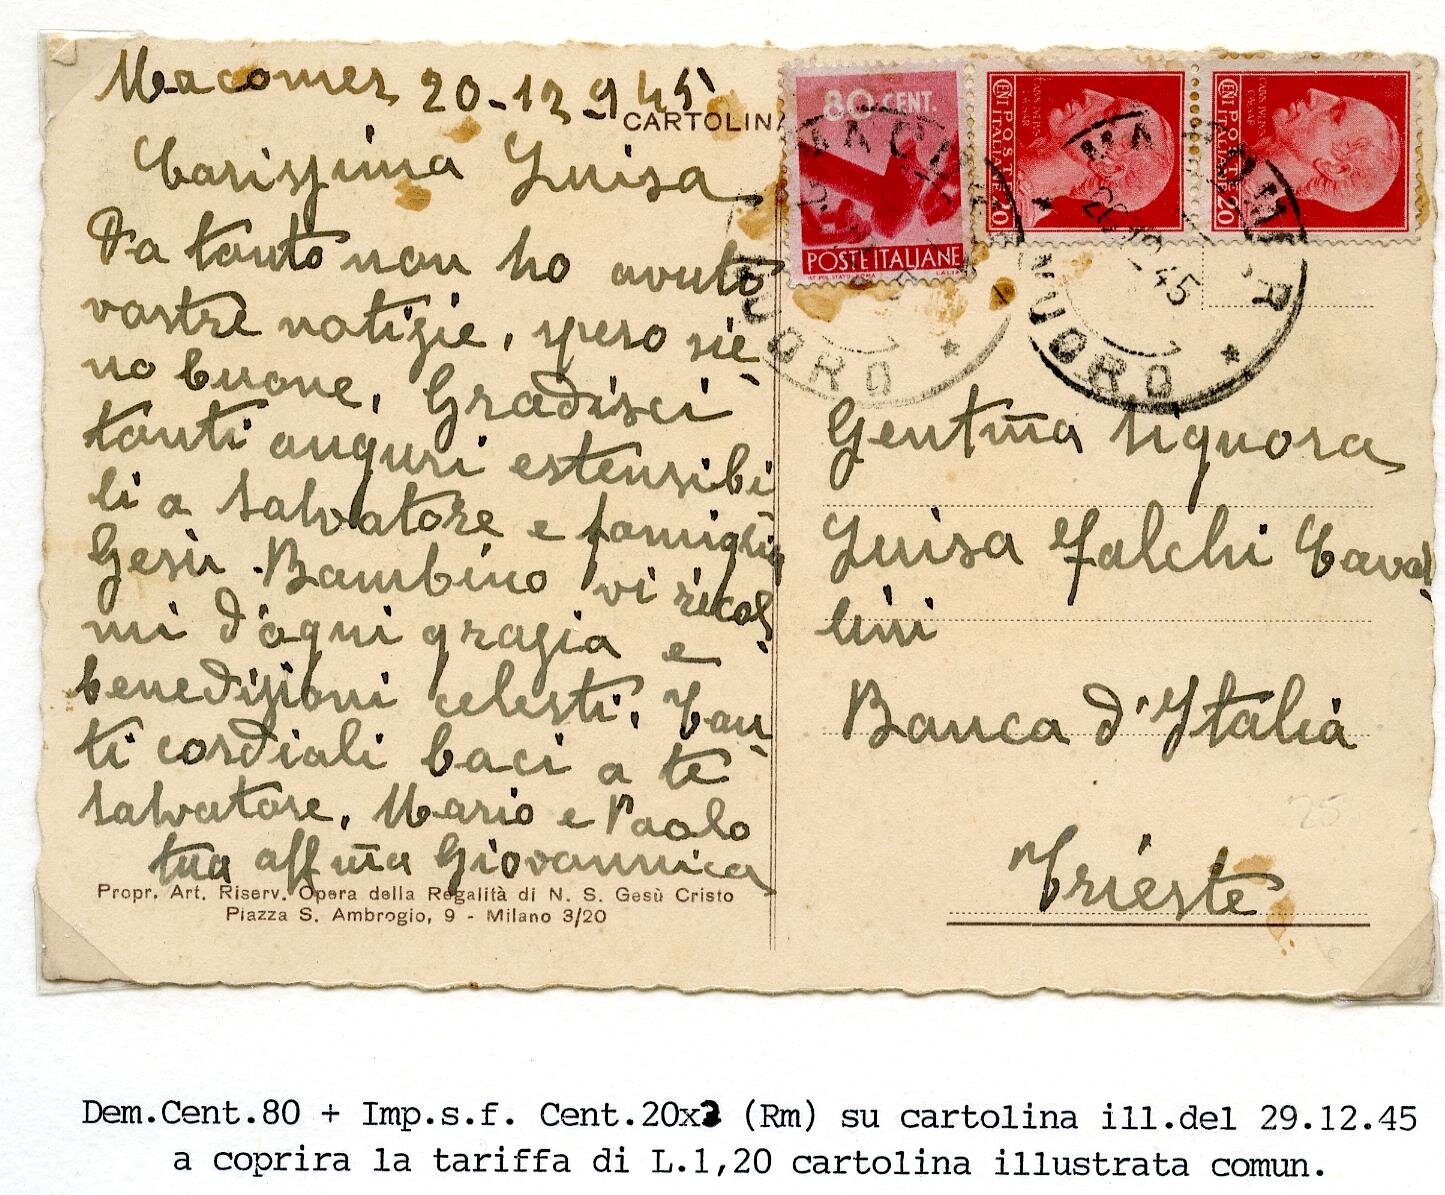 Macomer 20-12 945
CARTOLINA
Carissima Luisa
Da tanto non ho avuto
vostre notizie, spero sie-
no buone, Gradisci
tanti auguri estensibi-
li a Salvatore e famiglia
Gesù Bambino vi ricol-
mi d'ogni grazia e
benedizioni celesti. Tan-
ti cordiali baci a te
Salvatore, Mario e Paolo
tua affma Giovannica
Propr. Art. Riserv. Opera della Regalità di N. S. Gesù Cristo
Piazza S. Ambrogio, 9 - Milano 3/20
80 CENT.
POSTE ITALIANE
CENT 20
POSTE ITALIANE
CENT 20
POSTE ITALIANE
MACOMER
NUORO
MACOMER
12.45
NUORO
Gentma Signora
Luisa Falchi Caval-
lini
Banca d'Italia
25
Trieste
Dem.Cent.80 + Imp.s.f. Cent.20x2 (Rm) su cartolina ill.del 29.12.45
a coprira la tariffa di L.1,20 cartolina illustrata comun.